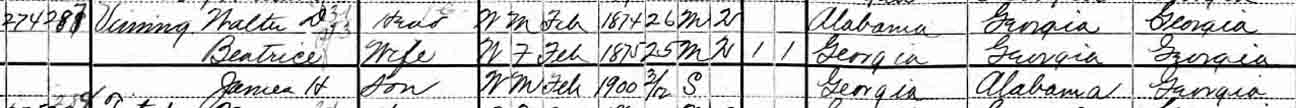 274 287 Vining Walter D Head W M Feb 1874 26 M 2 Alabama Georgia Georgia
Beatrice Wife W F Feb 1875 25 M 2 1 1 Georgia Georgia Georgia
James H Son W M Feb 1900 3/12 S Georgia Alabama Georgia